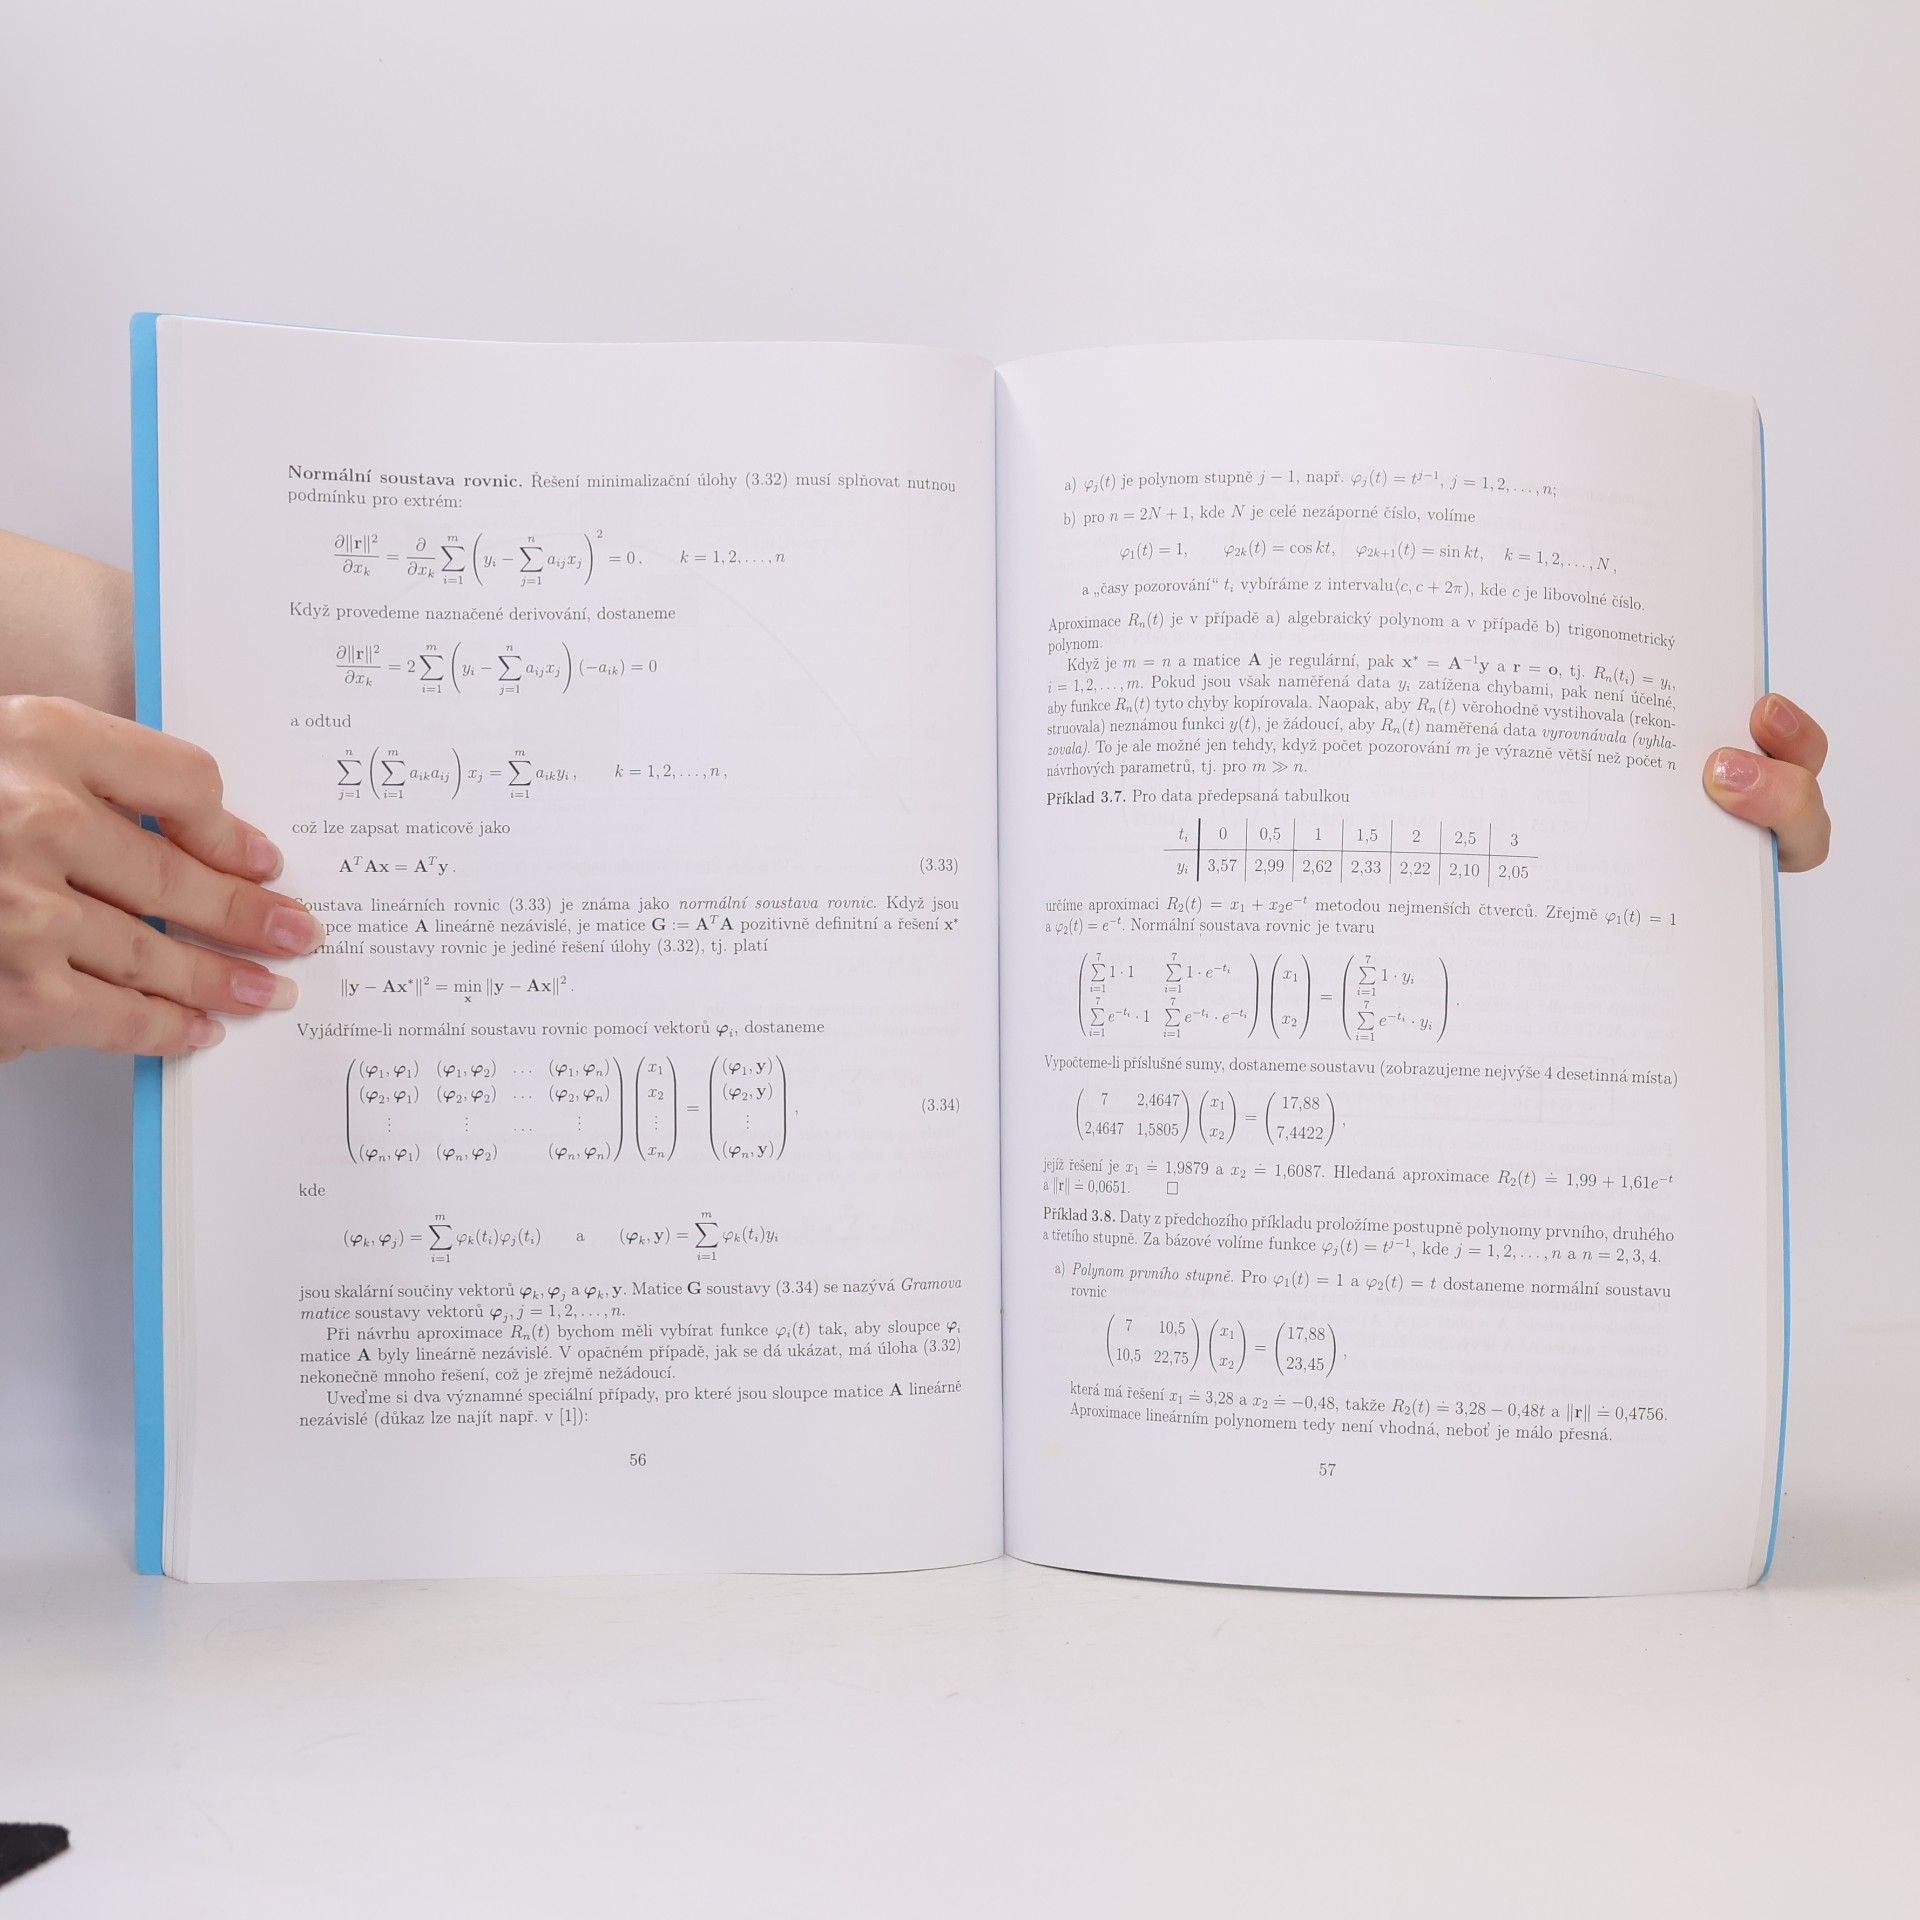 Normální soustava rovnic. Řešení minimalizační úlohy (3.32) musí splňovat nutnou
podmínku pro extrém:
∂‖r‖²/∂xₖ = ∂/∂xₖ ∑_{i=1}^{m} (yᵢ − ∑_{j=1}^{n} aᵢⱼxⱼ)² = 0. k = 1, 2, . . . , n
Když provedeme naznačené derivování, dostaneme
∂‖r‖²/∂xₖ = 2 ∑_{i=1}^{m} (yᵢ − ∑_{j=1}^{n} aᵢⱼxⱼ) (−aᵢₖ) = 0
a odtud
∑_{j=1}^{n} (∑_{i=1}^{m} aᵢₖaᵢⱼ) xⱼ = ∑_{i=1}^{m} aᵢₖyᵢ , k = 1, 2, . . . , n ,
což lze zapsat maticově jako
AᵀAx = Aᵀy . (3.33)
Soustava lineárních rovnic (3.33) je známa jako normální soustava rovnic. Když jsou
matice A lineárně nezávislé, je matice G := AᵀA pozitivně definitní a řešení x*
soustavy rovnic je jediné řešení úlohy (3.32), tj. platí
‖y − Ax*‖² = min_x ‖y − Ax‖² .
Vyjádříme-li normální soustavu rovnic pomocí vektorů φᵢ, dostaneme
(φ₁, φ₁) (φ₁, φ₂) . . . (φ₁, φₙ) x₁ (φ₁, y)
(φ₂, φ₁) (φ₂, φ₂) . . . (φ₂, φₙ) x₂ = (φ₂, y) , (3.34)
⋮ ⋮ . . . ⋮ ⋮ ⋮
(φₙ, φ₁) (φₙ, φ₂) (φₙ, φₙ) xₙ (φₙ, y)
kde
(φₖ, φⱼ) = ∑_{i=1}^{m} φₖ(tᵢ)φⱼ(tᵢ) a (φₖ, y) = ∑_{i=1}^{m} φₖ(tᵢ)yᵢ
jsou skalární součiny vektorů φₖ, φⱼ a φₖ, y. Matice G soustavy (3.34) se nazývá Gramova
matice soustavy vektorů φⱼ, j = 1, 2, . . . , n.
Při návrhu aproximace Rₙ(t) bychom měli vybírat funkce φᵢ(t) tak, aby sloupce φᵢ
matice A byly lineárně nezávislé. V opačném případě, jak se dá ukázat, má úloha (3.32)
nekonečně mnoho řešení, což je zřejmě nežádoucí.
Uveďme si dva významné speciální případy, pro které jsou sloupce matice A lineárně
nezávislé (důkaz lze najít např. v [1]):
56
a) φⱼ(t) je polynom stupně j − 1, např. φⱼ(t) = tʲ⁻¹, j = 1, 2, . . . , n;
b) pro n = 2N + 1, kde N je celé nezáporné číslo, volíme
φ₁(t) = 1, φ₂ₖ(t) = cos kt, φ₂ₖ₊₁(t) = sin kt, k = 1, 2, . . . , N ,
a „časy pozorování“ tᵢ vybíráme z intervalu⟨c, c + 2π), kde c je libovolné číslo.
Aproximace Rₙ(t) je v případě a) algebraický polynom a v případě b) trigonometrický
polynom.
Když je m = n a matice A je regulární, pak x* = A⁻¹y a r = o, tj. Rₙ(tᵢ) = yᵢ,
i = 1, 2, . . . , m. Pokud jsou však naměřená data yᵢ zatížena chybami, pak není účelné,
aby funkce Rₙ(t) tyto chyby kopírovala. Naopak, aby Rₙ(t) věrohodně vystihovala (rekon-
struovala) neznámou funkci y(t), je žádoucí, aby Rₙ(t) naměřená data vyrovnávala (vyhla-
zovala). To je ale možné jen tehdy, když počet pozorování m je výrazně větší než počet n
návrhových parametrů, tj. pro m ≫ n.
Příklad 3.7. Pro data předepsaná tabulkou
tᵢ 0 0,5 1 1,5 2 2,5 3
yᵢ 3,57 2,99 2,62 2,33 2,22 2,10 2,05
určíme aproximaci R₂(t) = x₁ + x₂e⁻ᵗ metodou nejmenších čtverců. Zřejmě φ₁(t) = 1
a φ₂(t) = e⁻ᵗ. Normální soustava rovnic je tvaru
∑_{i=1}^{7} 1 · 1 ∑_{i=1}^{7} 1 · e^{−tᵢ} x₁ = ∑_{i=1}^{7} 1 · yᵢ
∑_{i=1}^{7} e^{−tᵢ} · 1 ∑_{i=1}^{7} e^{−tᵢ} · e^{−tᵢ} x₂ ∑_{i=1}^{7} e^{−tᵢ} · yᵢ .
Vypočteme-li příslušné sumy, dostaneme soustavu (zobrazujeme nejvýše 4 desetinná místa)
7 2,4647 x₁ = 17,88
2,4647 1,5805 x₂ 7,4422 ,
jejíž řešení je x₁ ≐ 1,9879 a x₂ ≐ 1,6087. Hledaná aproximace R₂(t) ≐ 1,99 + 1,61e⁻ᵗ
a ‖r‖ ≐ 0,0651. □
Příklad 3.8. Daty z předchozího příkladu proložíme postupně polynomy prvního, druhého
a třetího stupně. Za bázové volíme funkce φⱼ(t) = tʲ⁻¹, kde j = 1, 2, . . . , n a n = 2, 3, 4.
a) Polynom prvního stupně. Pro φ₁(t) = 1 a φ₂(t) = t dostaneme normální soustavu
rovnic
7 10,5 x₁ = 17,88
10,5 22,75 x₂ 23,45 ,
která má řešení x₁ ≐ 3,28 a x₂ ≐ −0,48, takže R₂(t) ≐ 3,28 − 0,48t a ‖r‖ ≐ 0,4756.
Aproximace lineárním polynomem tedy není vhodná, neboť je málo přesná.
57